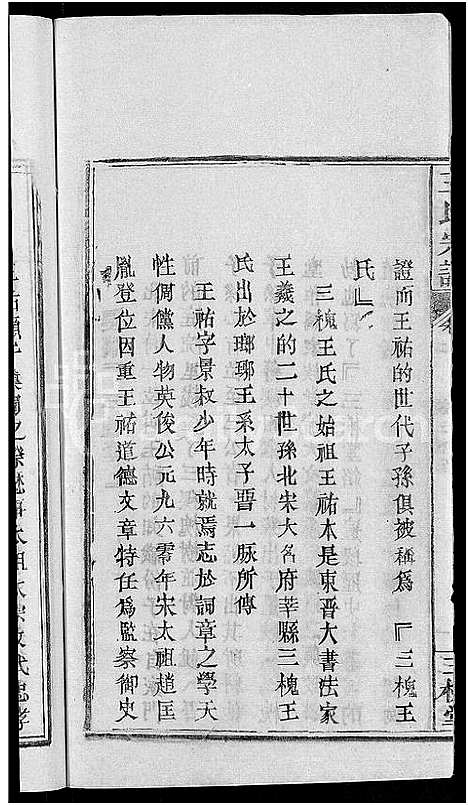 王氏宗譜
證而王祐的世代子孫俱被稱爲『三槐王
氏』
三槐王氏之始祖王祐本是東晋大書法家
王羲之的二十世孫北宋大名府莘縣三槐王
氏出於瑯琊王系太子晋一脉所傳
王祐字景叔少年時就篤志於詞章之學天
性倜儻人物英俊公元九六零年宋太祖趙匡
胤登位因重王祐道德文章特任爲監察御史
三槐堂